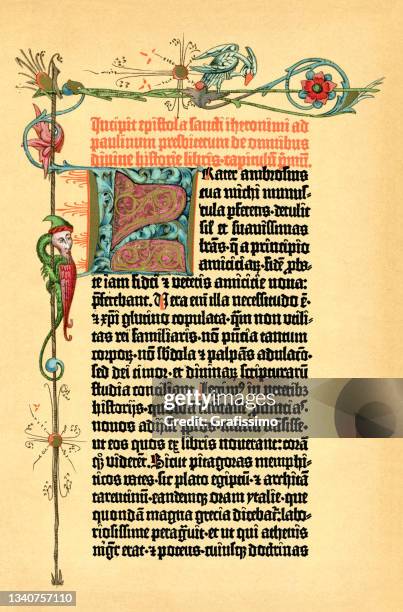 Incipit epistola sancti iheronimi ad
paulinum presbiterum de omnibus
divine historie libris·capitulū p̄mū.
Frater ambrosius
tua michi munuſ-
cula pferens·detulit
ſil' et suavissimas
lr̄as·q̄ a principio
amicicia⁊·fidē pba-
te iam fidei ⁊ veteris amicicie nova:
pferebant. Vera eni illa necessitudo ē·
⁊ xp̄i glutino copulata·qm̄ non utili-
tas rei familiaris·nō pn̄cia tantum
corpoꝝ·nō sbdola ⁊ palpās adulaco·
sed dei timor·et divinaꝝ scripturarū
studia conciliant. Legim⁹ in veteribꝫ
historijs·
novos adi
ut eos quos ex libris noverant: corā
qꝫ viderēt. Sicut pitagoras memphi-
ticos vates·sic plato egiptū·⁊ architā
tarentinū·eandemqꝫ oram ytalie·que
quondā magna grecia dicebat̄: labo-
riosissime peragit: et ut qui athenis
mḡr erat·⁊ potens·cuiusqꝫ doctrinas
gettyimages
Credit: Grafissimo
1340757110